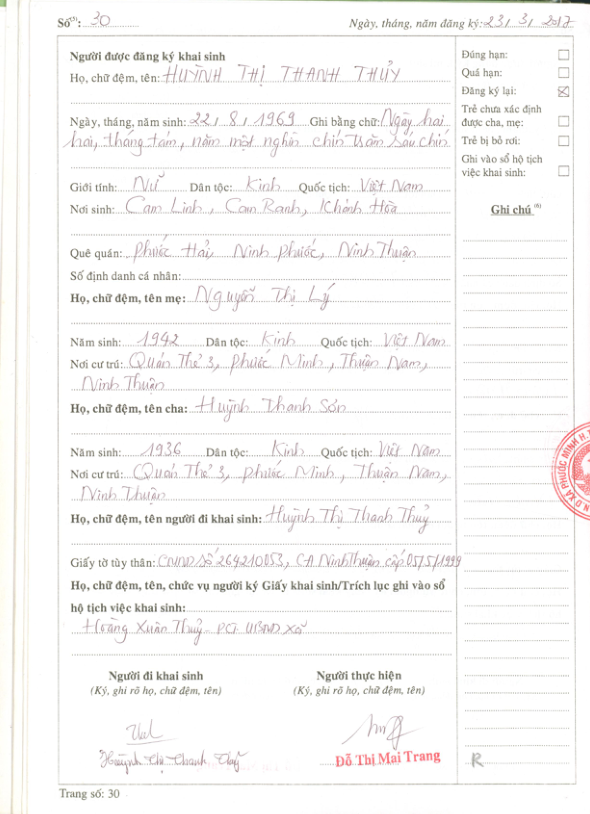 Số⁽⁵⁾: 30
Ngày, tháng, năm đăng ký: 23, 3, 2017
Người được đăng ký khai sinh
Họ, chữ đệm, tên: HUỲNH THỊ THANH THỦY
Ngày, tháng, năm sinh: 22, 8, 1969 Ghi bằng chữ: Ngày hai
hai, tháng tám, năm một nghìn chín trăm sáu chín
Giới tính: Nữ Dân tộc: Kinh Quốc tịch: Việt Nam
Nơi sinh: Cam Linh, Cam Ranh, Khánh Hòa
Quê quán: Phước Hải, Ninh Phước, Ninh Thuận
Số định danh cá nhân:
Họ, chữ đệm, tên mẹ: Nguyễn Thị Lý
Năm sinh: 1942 Dân tộc: Kinh Quốc tịch: Việt Nam
Nơi cư trú: Quán Thẻ 3, Phước Minh, Thuận Nam,
Ninh Thuận
Họ, chữ đệm, tên cha: Huỳnh Thanh Sơn
Năm sinh: 1936 Dân tộc: Kinh Quốc tịch: Việt Nam
Nơi cư trú: Quán Thẻ 3, Phước Minh, Thuận Nam,
Ninh Thuận
Họ, chữ đệm, tên người đi khai sinh: Huỳnh Thị Thanh Thuỷ
Giấy tờ tùy thân: CMND Số 264210053, CA Ninh Thuận cấp 05/5/1999
Họ, chữ đệm, tên, chức vụ người ký Giấy khai sinh/Trích lục ghi vào sổ
hộ tịch việc khai sinh:
Hoàng Xuân Thuỷ PCT UBND Xã
Người đi khai sinh
(Ký, ghi rõ họ, chữ đệm, tên)
Huỳnh Thị Thanh Thủy
Người thực hiện
(Ký, ghi rõ họ, chữ đệm, tên)
Đỗ Thị Mai Trang
Đúng hạn:
Quá hạn:
Đăng ký lại:
Trẻ chưa xác định
được cha, mẹ:
Trẻ bị bỏ rơi:
Ghi vào sổ hộ tịch
việc khai sinh:
Ghi chú ⁽⁶⁾
R
N.D XÃ PHƯỚC MINH H.
Trang số: 30